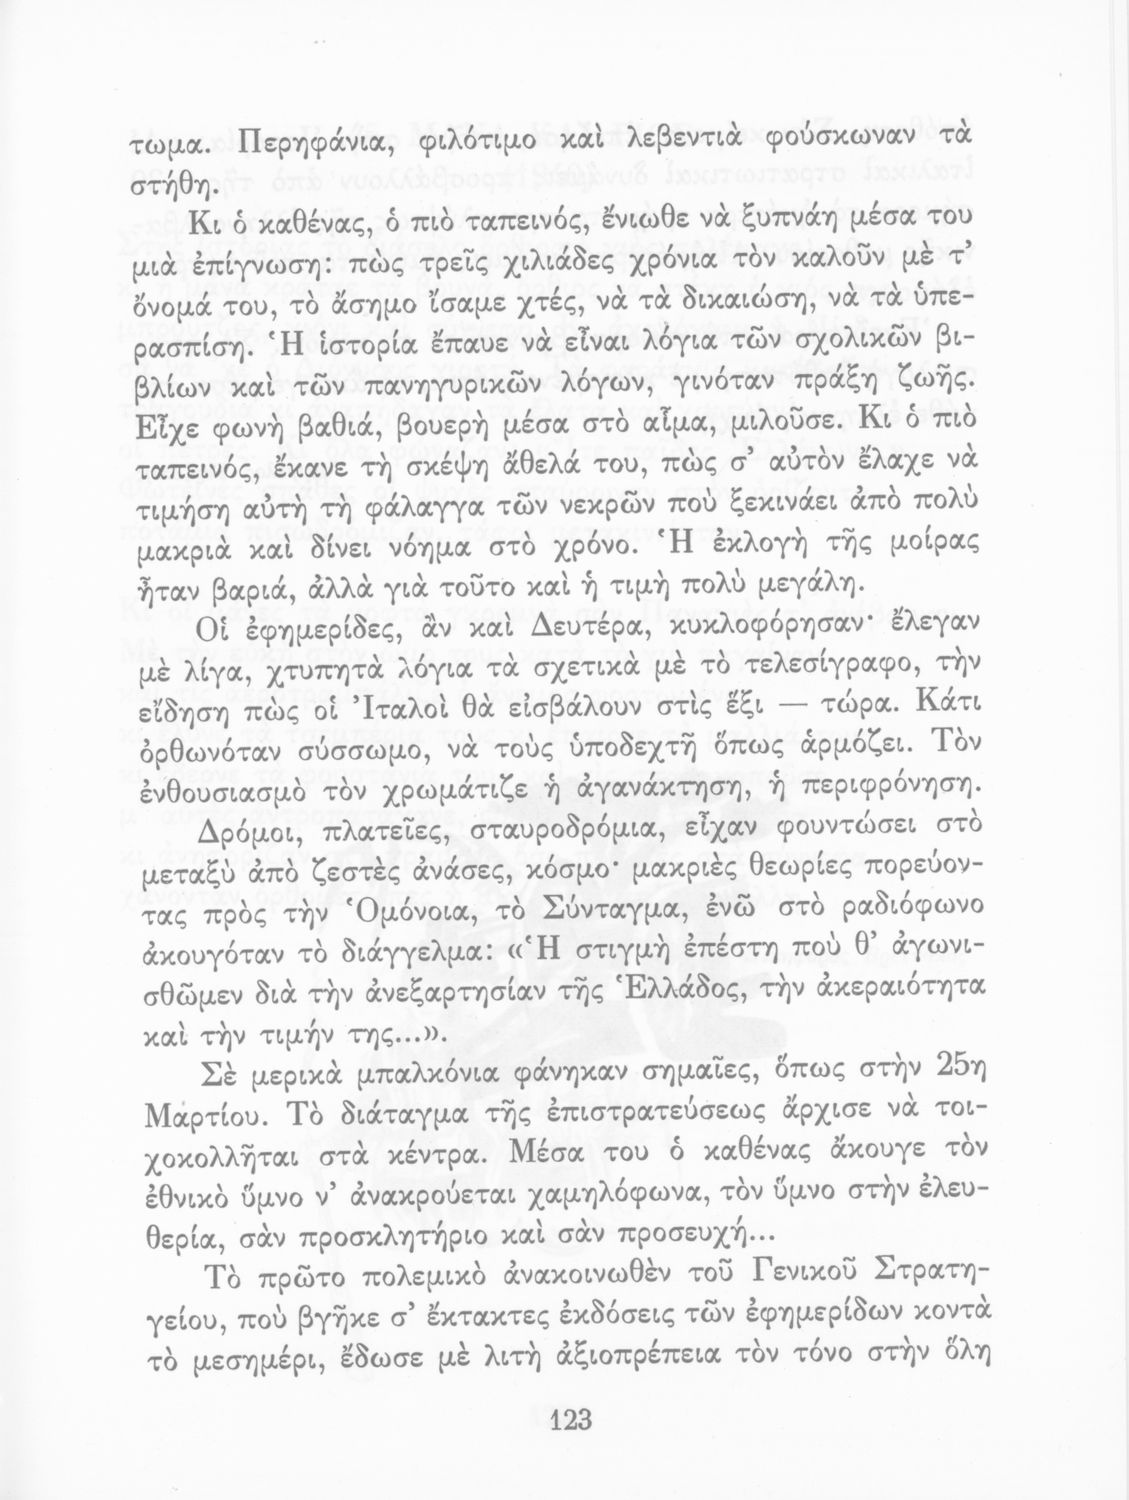 τωμα. Περηφάνια, φιλότιμο καὶ λεβεντιὰ φούσκωναν τὰ
στήθη.
Κι ὁ καθένας, ὁ πιὸ ταπεινός, ἔνιωθε νὰ ξυπνάη μέσα του
μιὰ ἐπίγνωση: πὼς τρεῖς χιλιάδες χρόνια τὸν καλοῦν μὲ τ’
ὄνομά του, τὸ ἄσημο ἴσαμε χτές, νὰ τὰ δικαιώση, νὰ τὰ ὑπε-
ρασπίση. Ἡ ἱστορία ἔπαυε νὰ εἶναι λόγια τῶν σχολικῶν βι-
βλίων καὶ τῶν πανηγυρικῶν λόγων, γινόταν πράξη ζωῆς.
Εἶχε φωνὴ βαθιά, βουερὴ μέσα στὸ αἷμα, μιλοῦσε. Κι ὁ πιὸ
ταπεινός, ἔκανε τὴ σκέψη ἄθελά του, πὼς σ’ αὐτὸν ἔλαχε νὰ
τιμήση αὐτὴ τὴ φάλαγγα τῶν νεκρῶν ποὺ ξεκινάει ἀπὸ πολὺ
μακριὰ καὶ δίνει νόημα στὸ χρόνο. Ἡ ἐκλογὴ τῆς μοίρας
ἦταν βαριά, ἀλλὰ γιὰ τοῦτο καὶ ἡ τιμὴ πολὺ μεγάλη.
Οἱ ἐφημερίδες, ἂν καὶ Δευτέρα, κυκλοφόρησαν· ἔλεγαν
μὲ λίγα, χτυπητὰ λόγια τὰ σχετικὰ μὲ τὸ τελεσίγραφο, τὴν
εἴδηση πὼς οἱ Ἰταλοὶ θὰ εἰσβάλουν στὶς ἕξι — τώρα. Κάτι
ὀρθωνόταν σύσσωμο, νὰ τοὺς ὑποδεχτῆ ὅπως ἁρμόζει. Τὸν
ἐνθουσιασμὸ τὸν χρωμάτιζε ἡ ἀγανάκτηση, ἡ περιφρόνηση.
Δρόμοι, πλατεῖες, σταυροδρόμια, εἶχαν φουντώσει στὸ
μεταξὺ ἀπὸ ζεστὲς ἀνάσες, κόσμο· μακριὲς θεωρίες πορεύον-
τας πρὸς τὴν Ὁμόνοια, τὸ Σύνταγμα, ἐνῶ στὸ ραδιόφωνο
ἀκουγόταν τὸ διάγγελμα: «Ἡ στιγμὴ ἐπέστη ποὺ θ’ ἀγωνι-
σθῶμεν διὰ τὴν ἀνεξαρτησίαν τῆς Ἑλλάδος, τὴν ἀκεραιότητα
καὶ τὴν τιμήν της...».
Σὲ μερικὰ μπαλκόνια φάνηκαν σημαῖες, ὅπως στὴν 25η
Μαρτίου. Τὸ διάταγμα τῆς ἐπιστρατεύσεως ἄρχισε νὰ τοι-
χοκολλῆται στὰ κέντρα. Μέσα του ὁ καθένας ἄκουγε τὸν
ἐθνικὸ ὕμνο ν’ ἀνακρούεται χαμηλόφωνα, τὸν ὕμνο στὴν ἐλευ-
θερία, σὰν προσκλητήριο καὶ σὰν προσευχή...
Τὸ πρῶτο πολεμικὸ ἀνακοινωθὲν τοῦ Γενικοῦ Στρατη-
γείου, ποὺ βγῆκε σ’ ἔκτακτες ἐκδόσεις τῶν ἐφημερίδων κοντὰ
τὸ μεσημέρι, ἔδωσε μὲ λιτὴ ἀξιοπρέπεια τὸν τόνο στὴν ὅλη
123